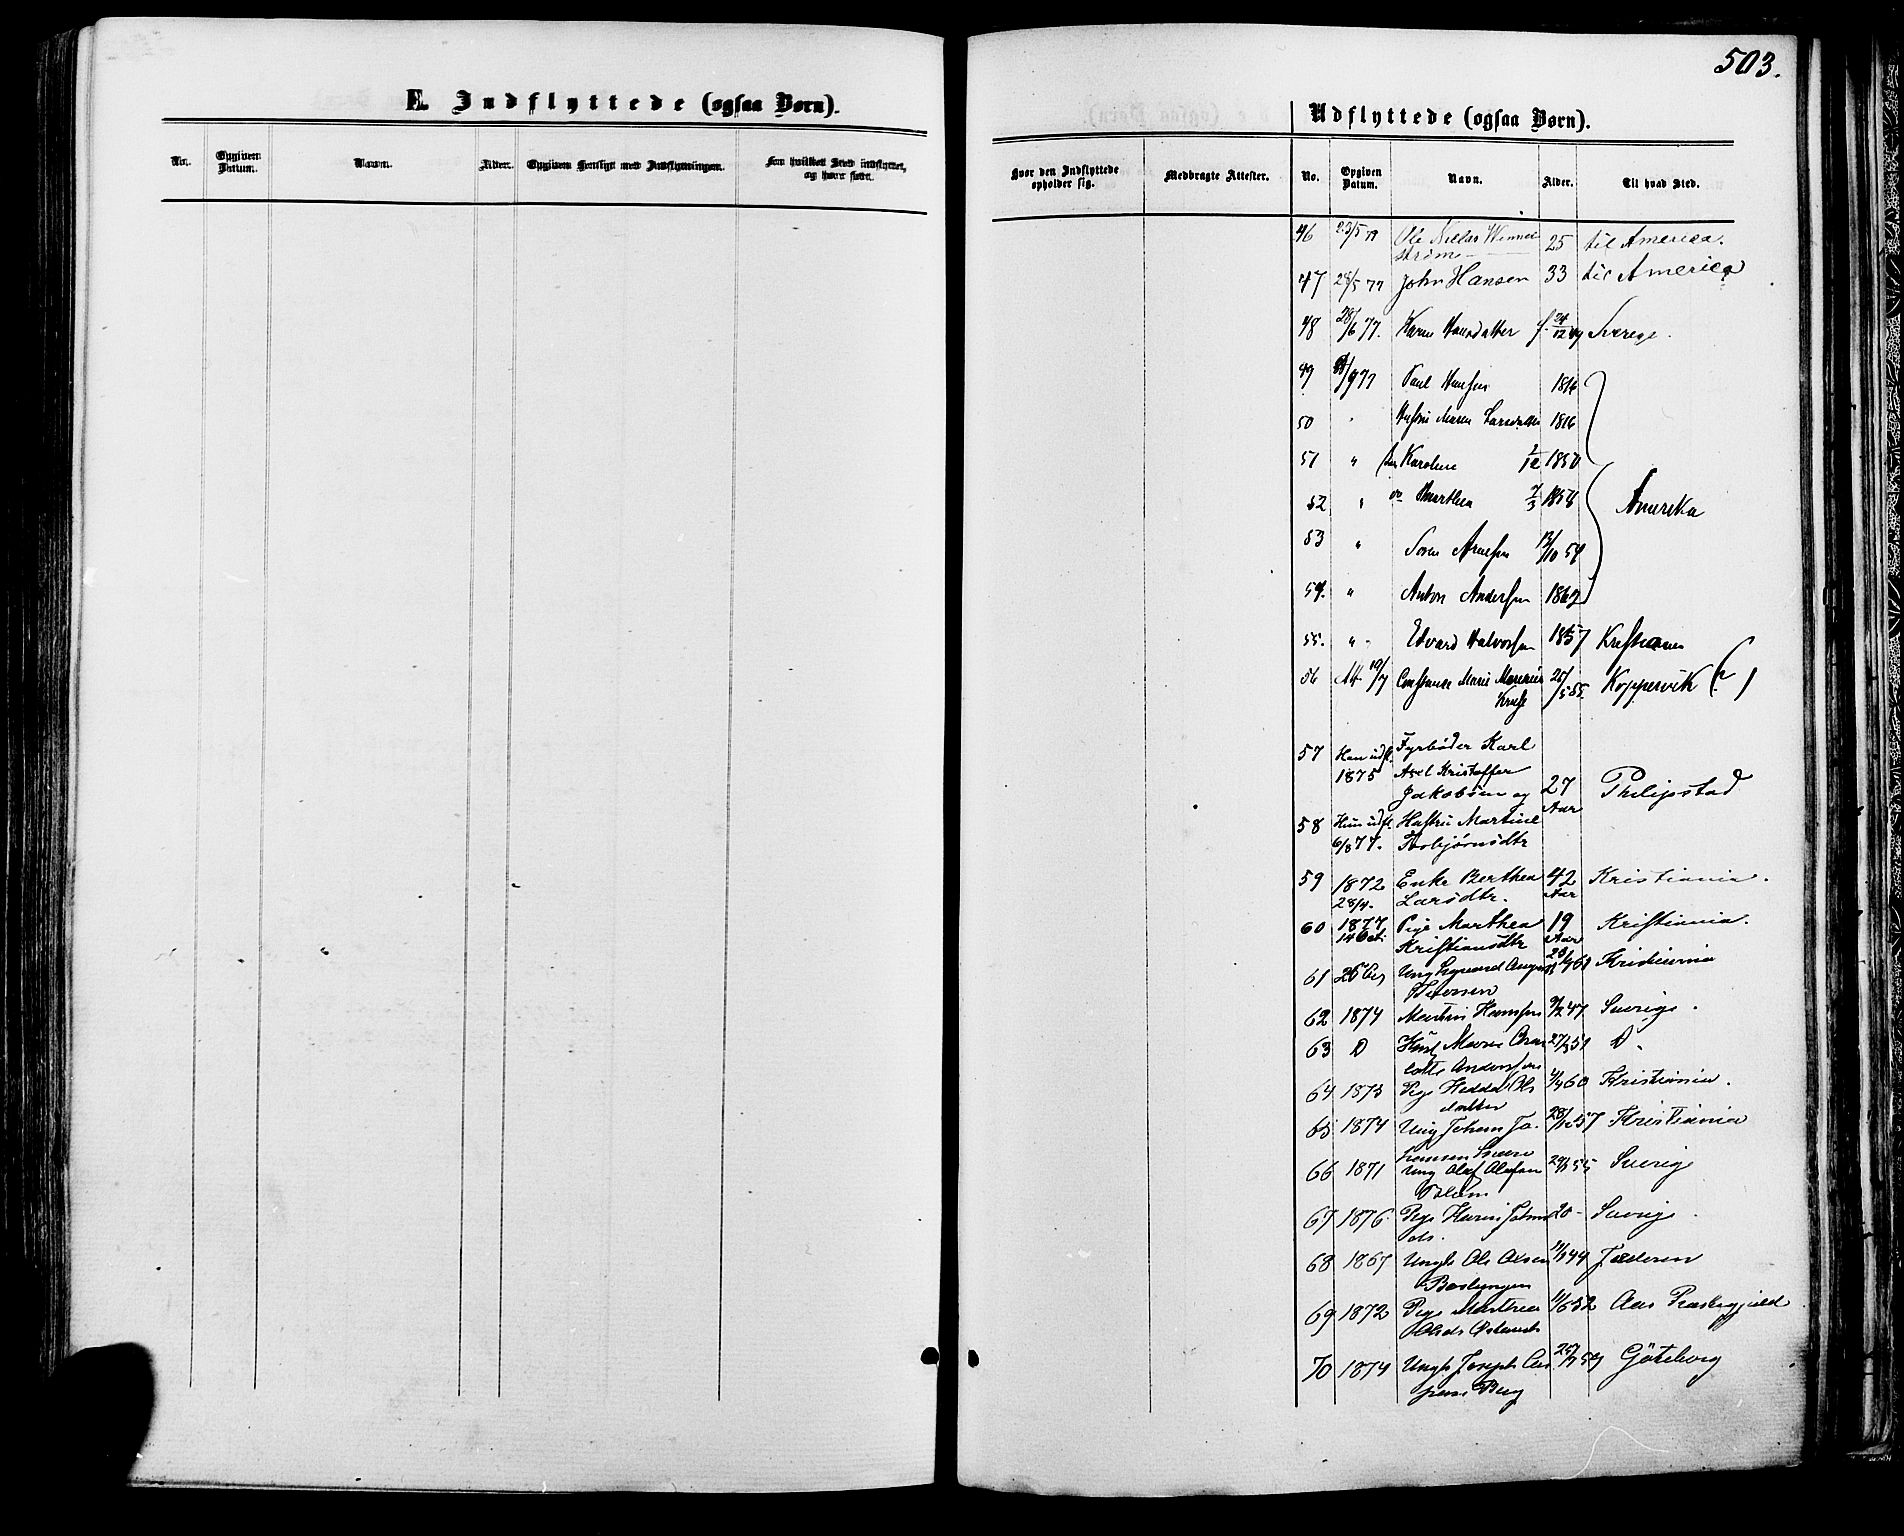 503.
E. Indflyttede (ogsaa Børn).
Udflyttede (ogsaa Børn).
No. Opgiven Datum. Navn. Alder. Opgiven Hensigt med Indflytningen. Fra hvilket Sted indflyttet, og hvor født.
Hvor den Indflyttede opholder sig. Medbragte Attester. No. Opgiven Datum. Navn. Alder. Til hvad Sted.
46 23/5 77 Ole Niclas Wennel
strøm 25 til America.
47 28/5 77 John Hansen 33 til America
48 28/6 77. Karen Hansdatter f. 24/12 49 Sverige.
49 /9 77 Paul Hansen 1816
50 " Hustru Maren Larsdatter 1816
51 " Karoline 1850
52 " Marthea 7/3 1858
Amerika
53 " Soren Arnesen 13/10 59
54. " Anton Andersen 1862
55. " Edvard Halvorsen 1857 Kristiania
56 Att 10/7 Constance Marie
Kruse 25/5 55. Koppervik (?)
57 Han udfl. 1875 Fyrbøder Karl
Axel Kristoffer
Jakobsen og 27 Aar Philipstad
58 Hun udfl. 6/8 77. Hustru Martine
Torbjørnsdtr
59 1872 28/4. Enke Berthea
Larsdtr. 42 Aar Kristiania.
60 1877 14 Octr Pige Marthea
Kristiansdtr 19 Aar Kristiania.
61 Ung Sigvard August
Petersen 61 Kristiania
62 1874 Martin Hansen 9/2 47 Sverige.
63 D Hust Maren Char
lotte Andersen 27/3 51 D.
64 1873 Pige Hedda Ols
datter 4/4 60 Kristiania.
65 1874 Ung Johan Jo.
hansen 28/10 57 Kristiania
66 1871 Ung Olaf Olafsen
Blom 55 Sverige
67 1876 Pige Karin Johns
ds. 20 - Sverige.
68 1867 Ungk Ole Olsen 44 Jæderen
69 1872 Pige Martrea
Olsds 11/6 52 Aas Præstegjeld
70 1874 Ungk Joseph Cas
persen Berg Göteborg